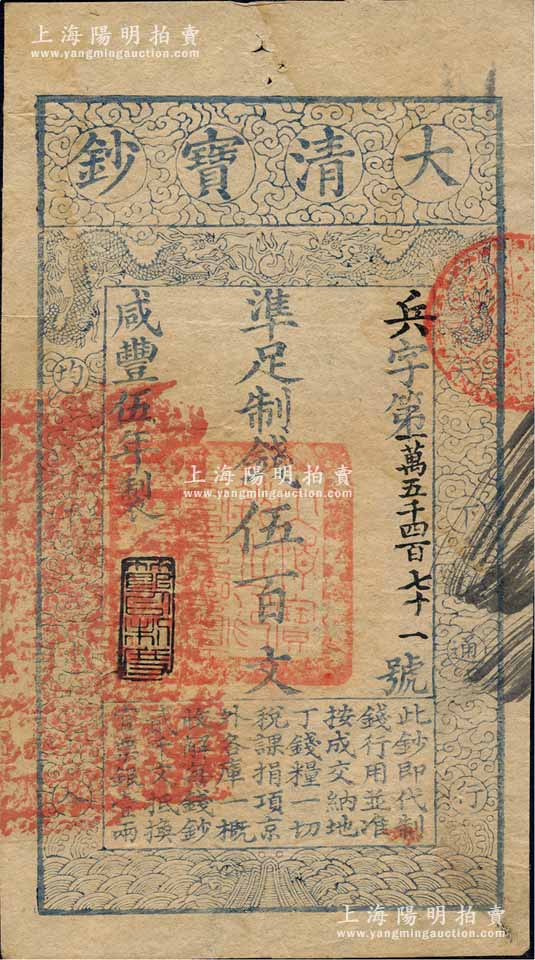 上海陽明拍賣
www.yangmingauction.com
大清寶鈔
兵字第一萬五千四百七十一號
準足制錢伍百文
咸豐伍年製
此鈔即代制
錢行用並准
按成交納地
丁錢糧一切
稅課捐項京
外各庫一概
收解每錢鈔
貳千文抵換
官票銀壹兩
天下通行
均平出入
上海陽明拍賣
www.yangmingauction.com
上海陽明拍賣
www.yangmingauction.com